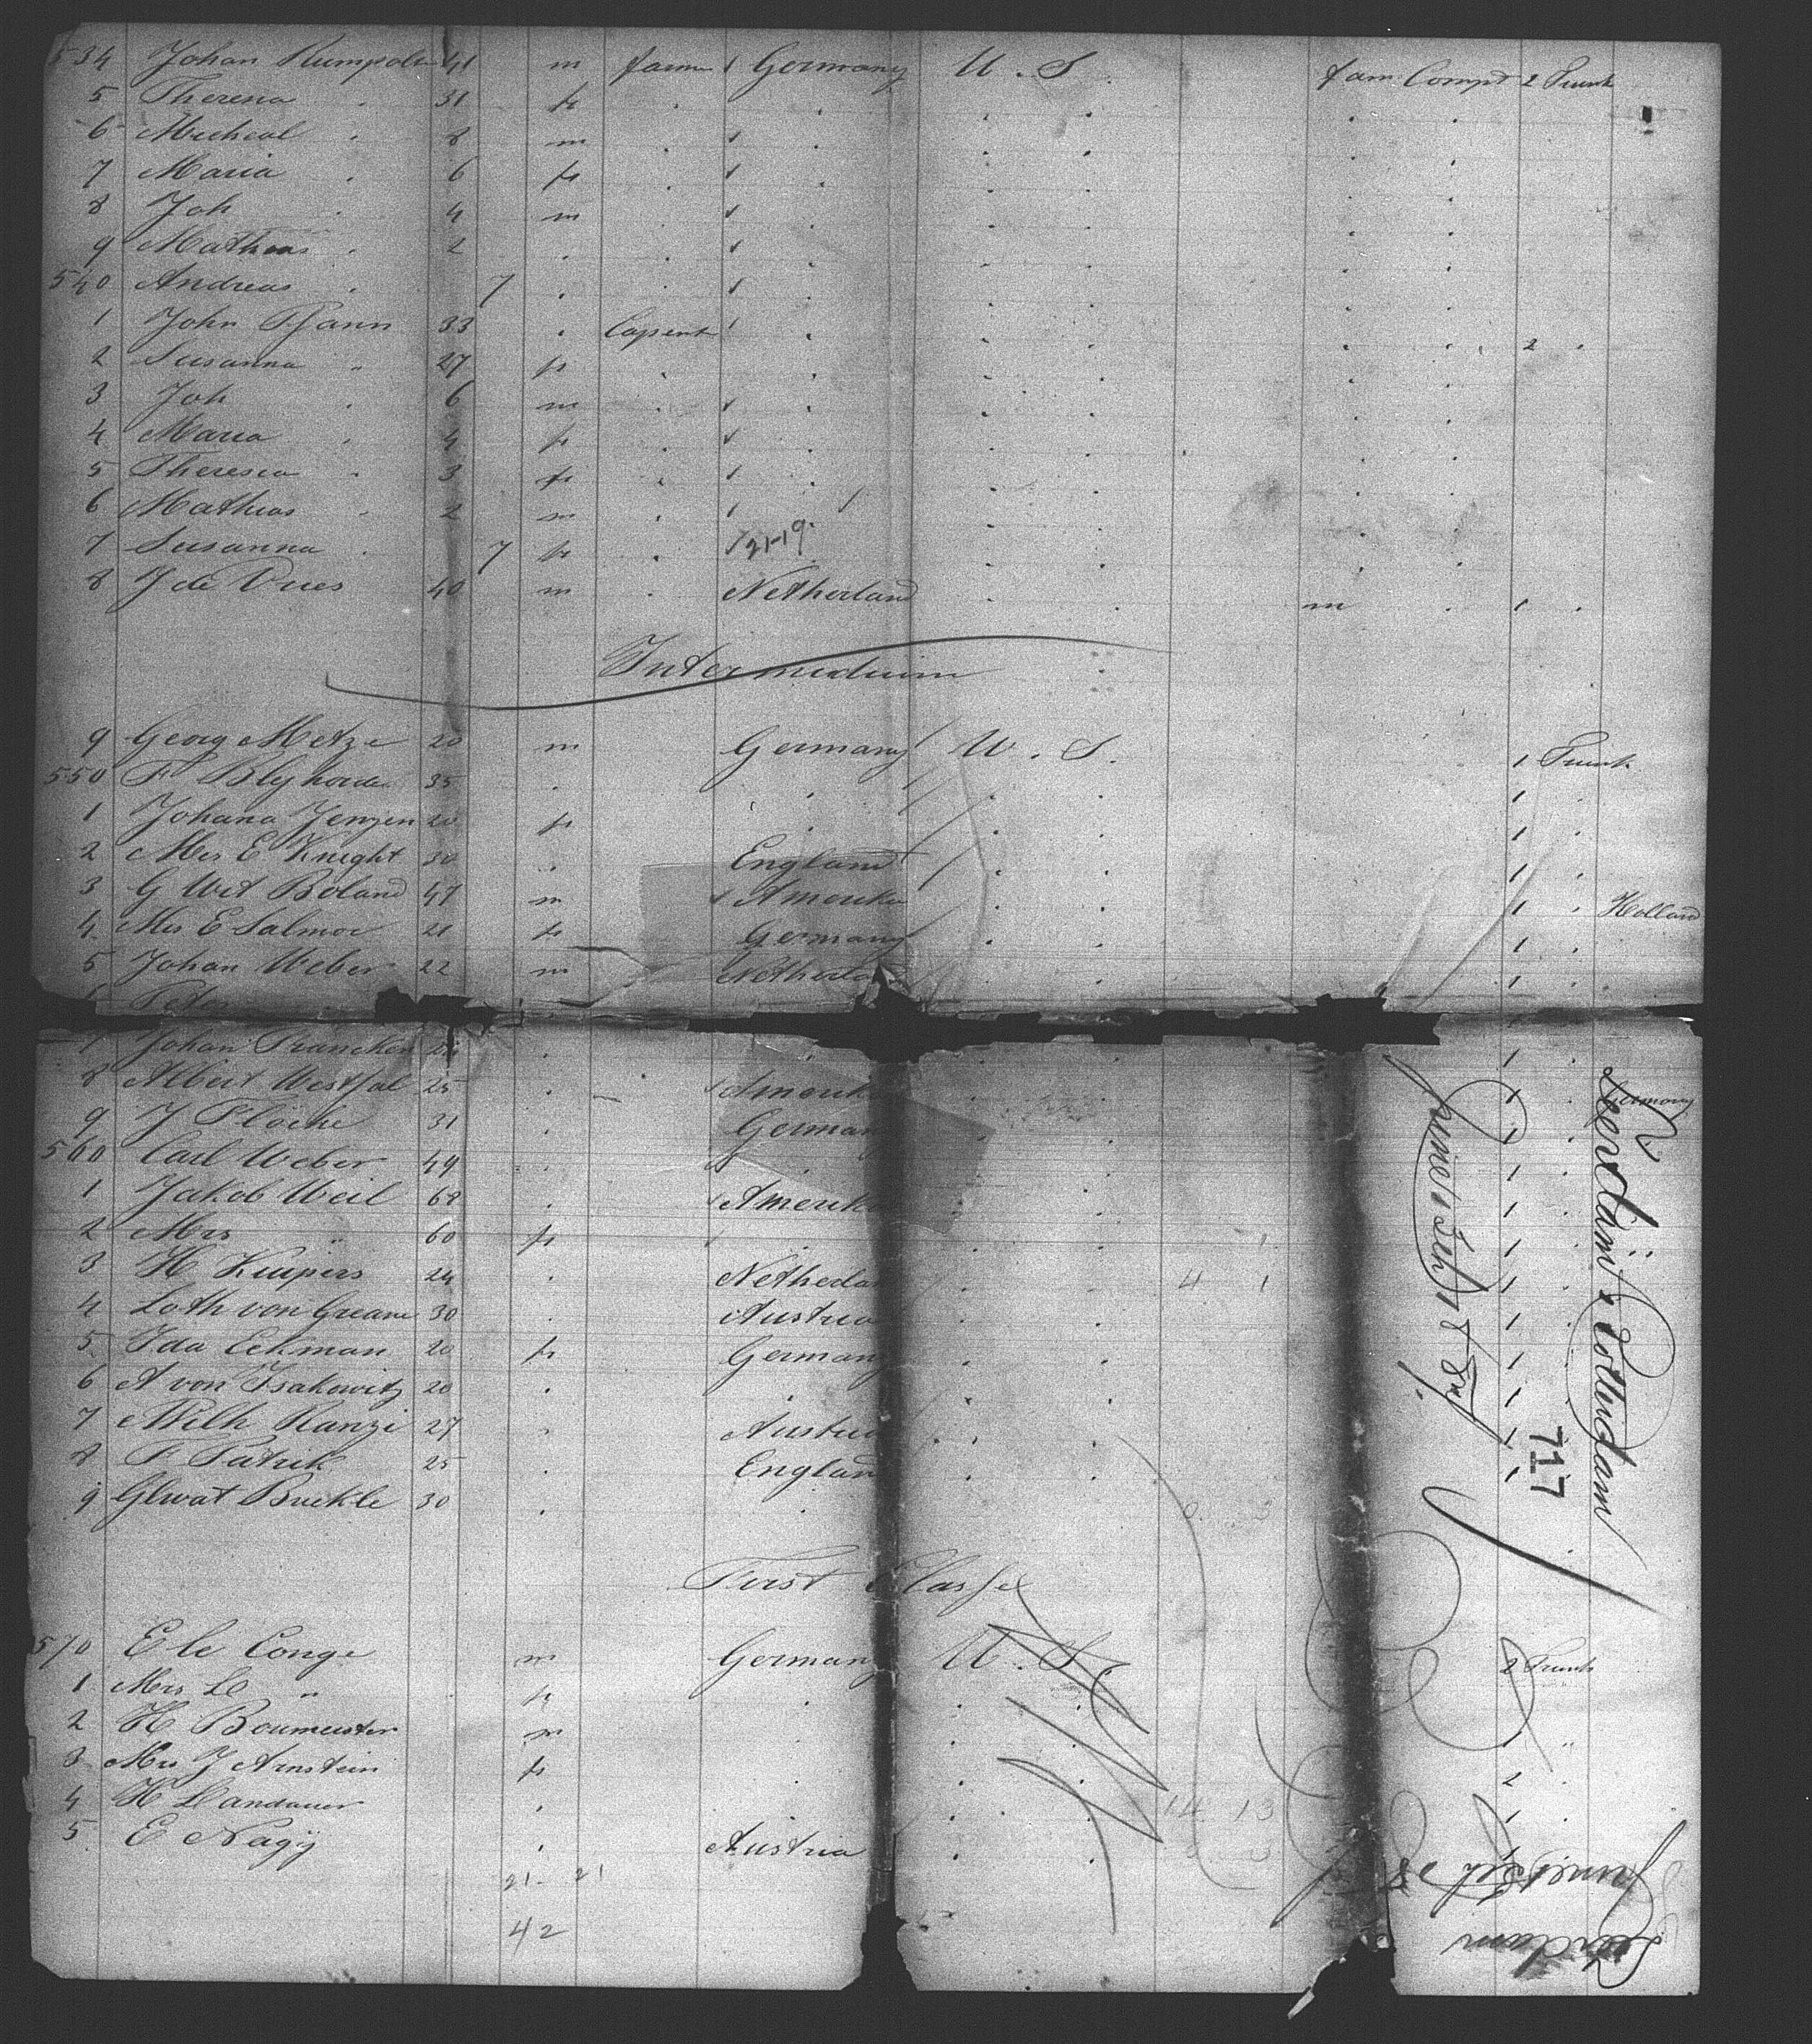 534 Johan Rumpolr 41 m farm Germany U.S. fam Compt 2 Trunk
5 Theresia . 31 fe
6 Micheal . 8 m
7 Maria . 6 fe
8 Joh . 4 m
9 Mathias . 2 .
540 Andreas . 7 .
1 John Pfann 33 . Capent 2 .
2 Susanna " 27 fe
3 Joh . 6 m
4 Maria . 4 fe
5 Theresia . 3 fe
6 Mathias . 2 m
7 Susanna . 7 fe 21-19
8 J de Vries 40 m . Netherland m . 1 .
Intermedium
9 Georg Metze 20 m Germany U.S. 1 Trunk
550 F Blyhorde 35 . 1 .
1 Johana Jenzen 20 fe 1 .
2 Mrs E Knight 30 . England 1 .
3 G Wet Boland 47 m Amerika 1 . Holland
4 Mrs E Salmor 21 fe Germany 1 .
5 Johan Weber 22 m Netherland 1 .
6 Peter
7 Johan Francken . 1 .
8 Albert Westfal 25 . Amerik 1 . Germany
9 J Flöche 31 . German 1 .
560 Carl Weber 49 . 1 .
1 Jakob Weil 68 . Amerik 1 .
2 Mrs " 60 fe 1 .
3 H Kuipers 24 . Netherla 4 1 1 .
4 Loth von Greane 30 . Austria 1 .
5 Ida Eckman 20 fe German 1 .
6 A von Isakowitz 20 . 1 .
7 Wilh Ranzi 27 . Austria 1
8 F Patrik 25 . England 1
9 Glwat Buckle 30 .
First Classe
570 E le Conge m German U.S. 2 Trunk
1 Mrs L " fe
2 H Boumeister m 1 "
3 Mrs J Arnstein fe 2 .
4 H Landauer . 14 13 1 .
5 E Nagij . Austria
21- 21
42
Rotterdam
717